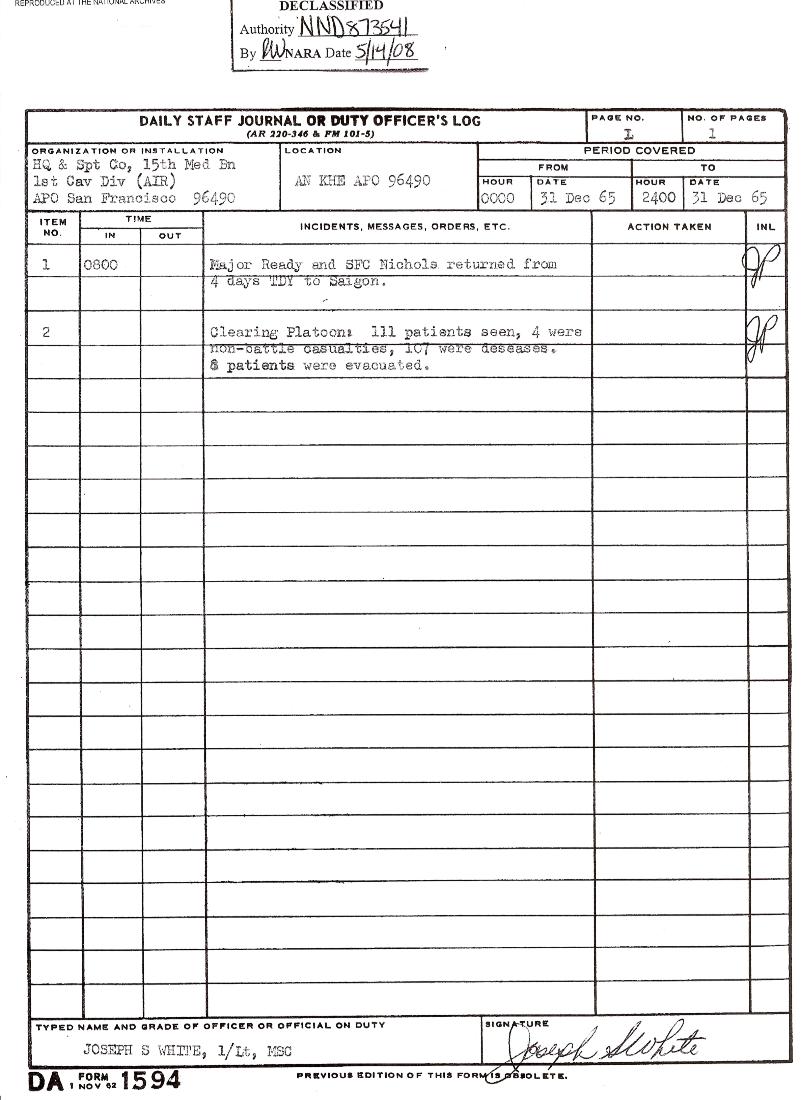 REPRODUCED AT THE NATIONAL ARCHIVES
DECLASSIFIED
Authority NND873541
By NARA Date 5/14/08
DAILY STAFF JOURNAL OR DUTY OFFICER'S LOG
(AR 220-346 & FM 101-5)
PAGE NO.
1
NO. OF PAGES
1
ORGANIZATION OR INSTALLATION
HQ & Spt Co, 15th Med Bn
1st Cav Div (AIR)
APO San Francisco 96490
LOCATION
AN KHE APO 96490
PERIOD COVERED
FROM
TO
HOUR
DATE
HOUR
DATE
0000
31 Dec 65
2400
31 Dec 65
ITEM NO.
TIME
IN
OUT
INCIDENTS, MESSAGES, ORDERS, ETC.
ACTION TAKEN
INL
1 0800 Major Ready and SFC Nichols returned from
4 days TDY to Saigon.
2 Clearing Platoon: 111 patients seen, 4 were
non-battle casualties, 107 were deseases.
8 patients were evacuated.
TYPED NAME AND GRADE OF OFFICER OR OFFICIAL ON DUTY
JOSEPH S WHITE, 1/Lt, MSC
SIGNATURE
Joseph S White
DA FORM 1 NOV 62 1594
PREVIOUS EDITION OF THIS FORM IS OBSOLETE.